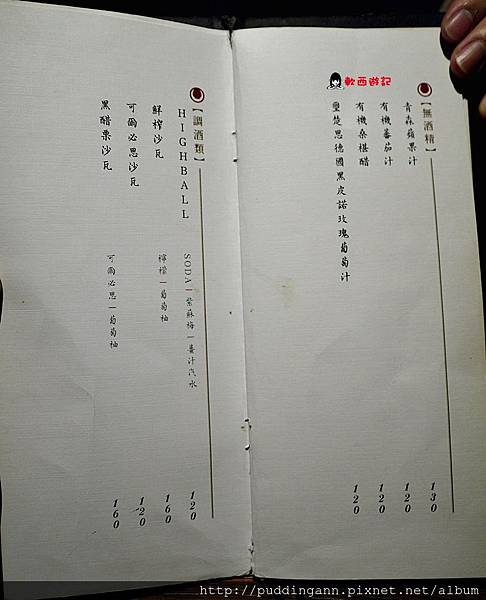 軟西遊記
【無酒精】
青森蘋果汁 130
有機蕃茄汁 120
有機桑椹醋 120
璽楚思德國黑皮諾玫瑰葡萄汁 120
【調酒類】
HIGHBALL SODA|紫蘇梅|薑汁汽水 120
鮮榨沙瓦 檸檬|葡萄柚 160
可爾必思沙瓦 120
黑醋栗沙瓦 可爾必思|葡萄柚 160
http://puddingann.pixnet.net/album